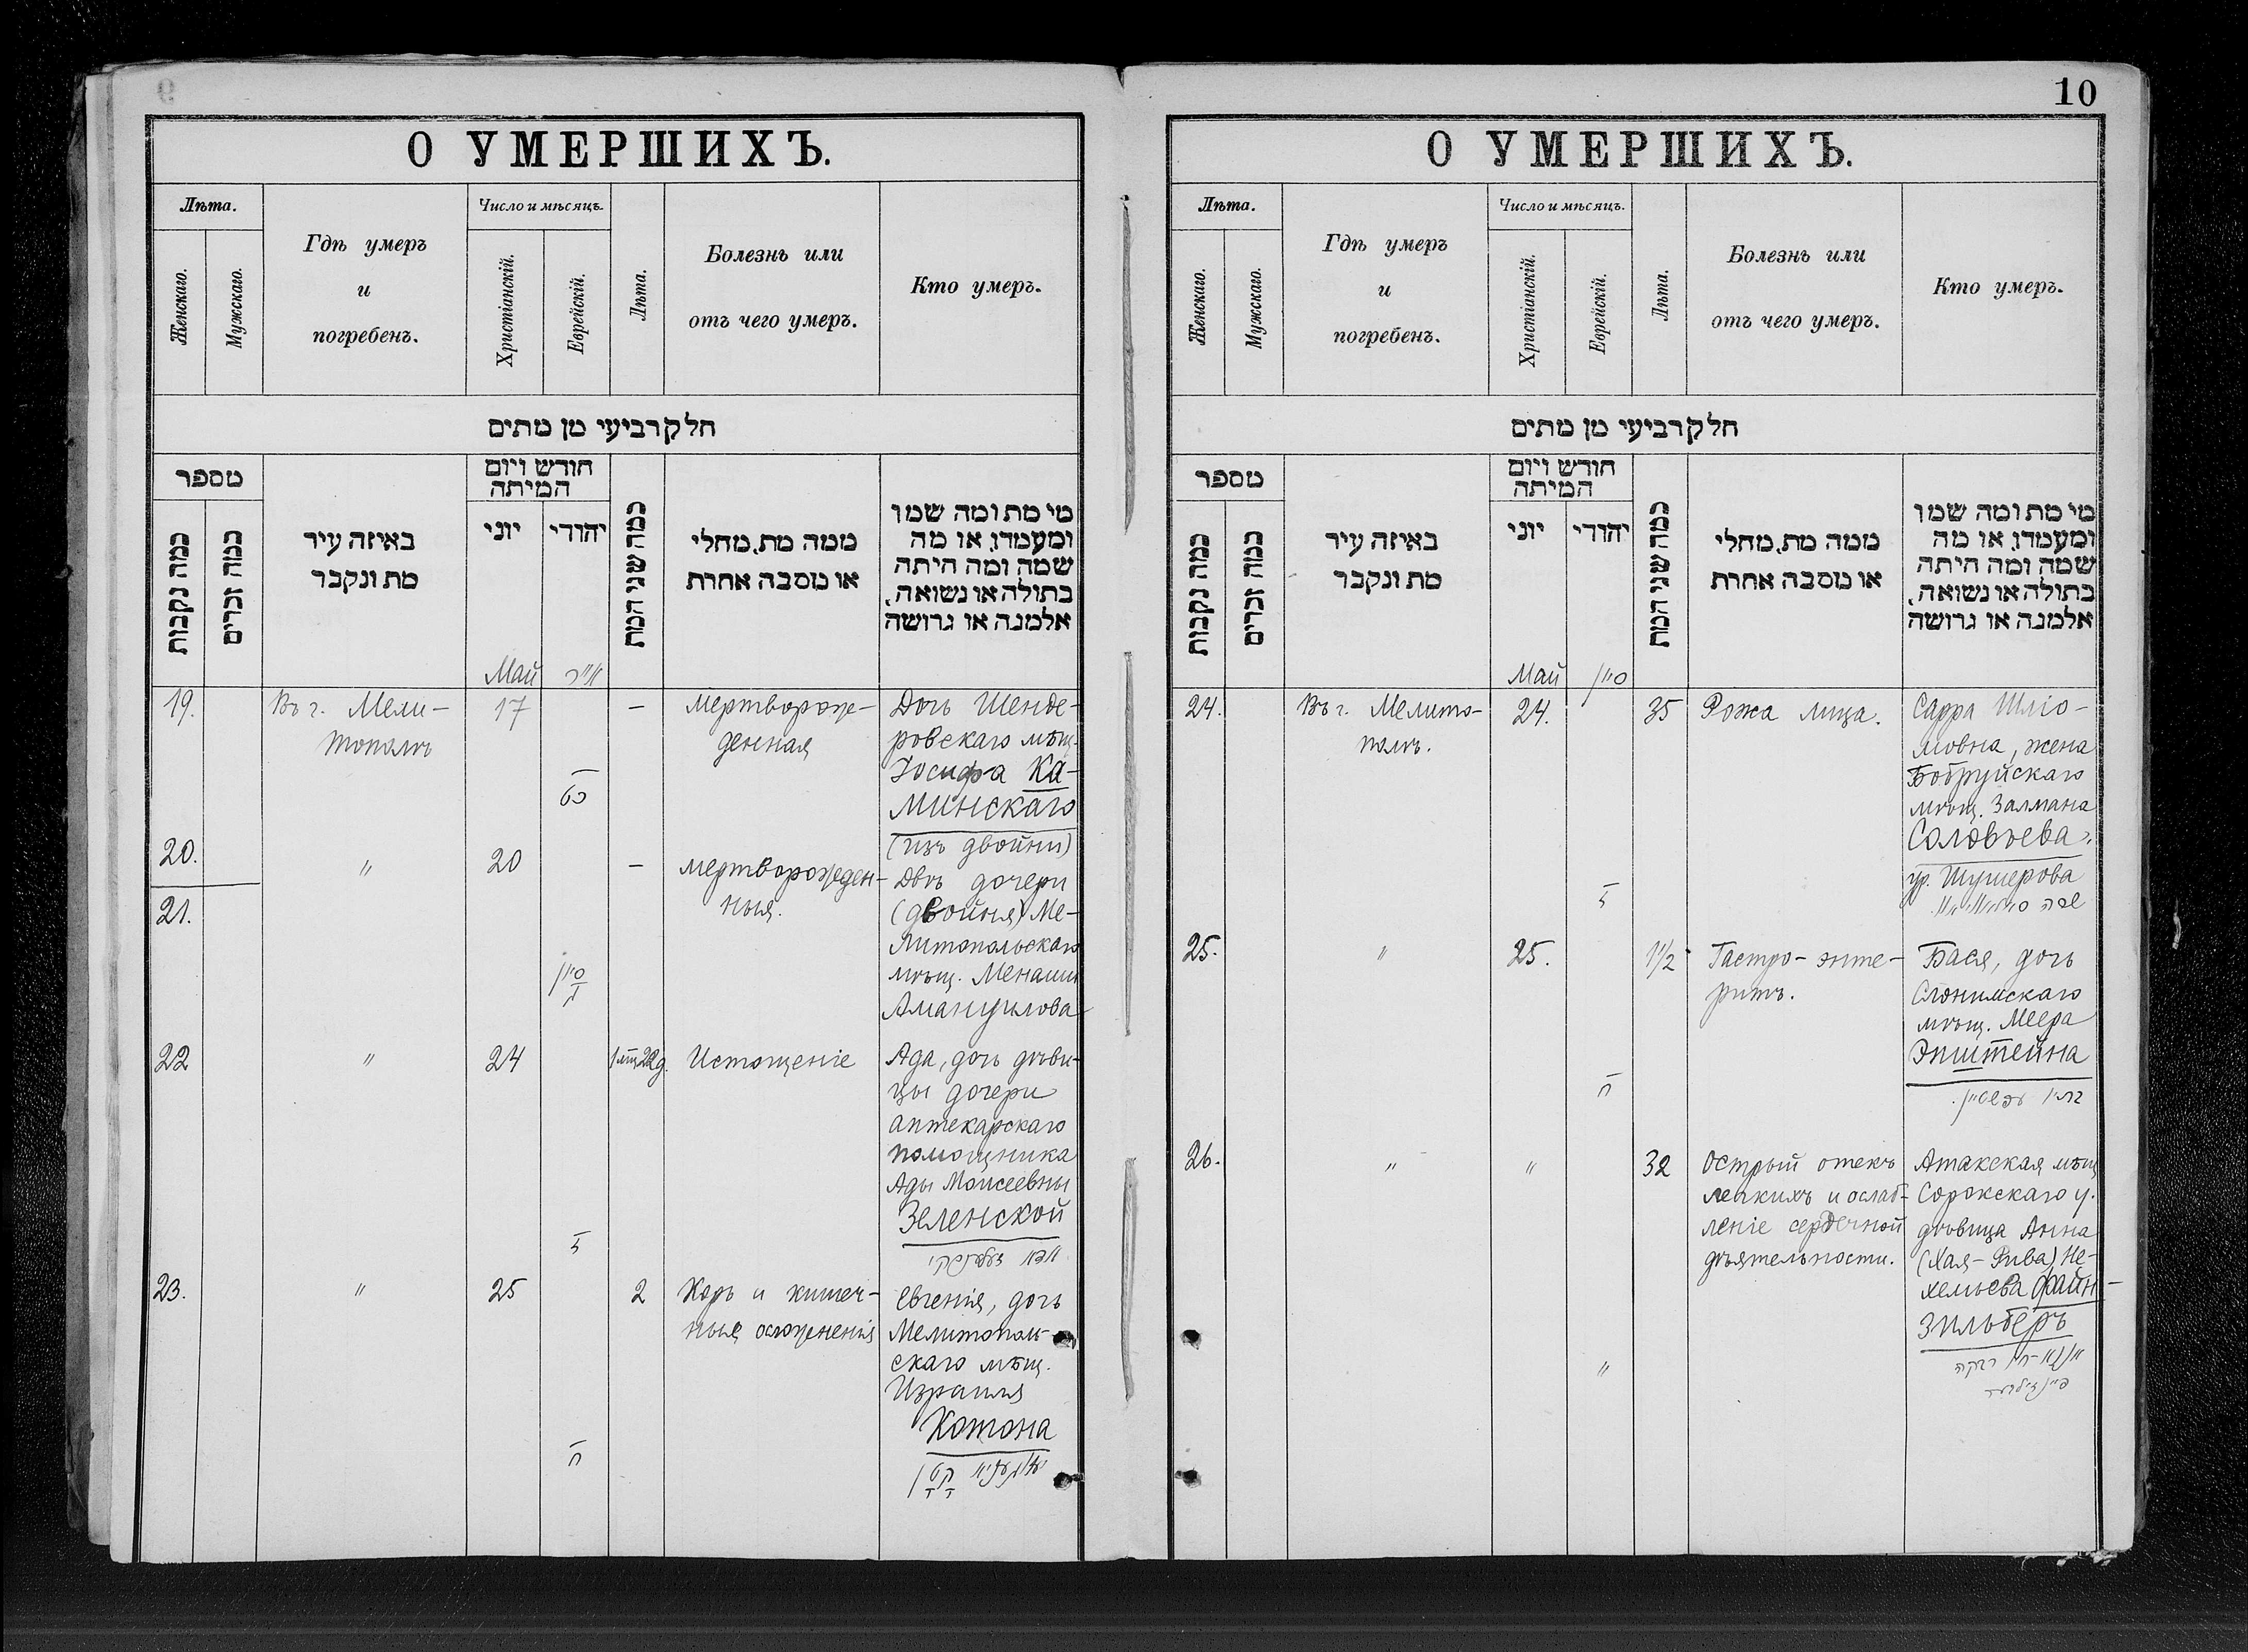 О УМЕРШИХЪ.
Лѣта.
Женскаго.
Мужскаго.
Гдѣ умеръ
и
погребенъ.
Число и мѣсяцъ.
Христіанскій.
Еврейскій.
Лѣта.
Болезнь или
отъ чего умеръ.
Кто умеръ.
חלק רביעי מן מתים
מספר
כמה נקבות
כמה זכרים
באיזה עיר
מת ונקבר
חודש ויום
המיתה
יוני
יהודי
כמה שני המת
ממה מת, מחלי
או מסבה אחרת
מי מת ומה שמו
ומעמדו, או מה
שמה ומה היתה
בתולה או נשואה,
אלמנה או גרושה
Май
אייר
19.
Въ г. Мели-
тополѣ
17
כט
—
Мертворож-
денная
Дочь Шенде-
ровскаго мѣщ.
Іосифа Ка-
минскаго
(изъ двойни)
20.
21.
"
20
סיון
ג
—
Мертворожден-
ныя.
Двѣ дочери
(двойня) Ме-
литопольскаго
мѣщ. Менаши
Амануилова
22
"
24
ז
Истощеніе
Ада, дочь дѣви-
цы дочери
аптекарскаго
помощника
Ады Моисеевны
Зеленской
אדא זעלענסקי
23.
"
25
ח
2
Корь и кишеч-
ныя осложненія
Евгенія, дочь
Мелитополь-
скаго мѣщ.
Израиля
Котона
קטן
10
О УМЕРШИХЪ.
Лѣта.
Женскаго.
Мужскаго.
Гдѣ умеръ
и
погребенъ.
Число и мѣсяцъ.
Христіанскій.
Еврейскій.
Лѣта.
Болезнь или
отъ чего умеръ.
Кто умеръ.
חלק רביעי מן מתים
מספר
כמה נקבות
כמה זכרים
באיזה עיר
מת ונקבר
חודש ויום
המיתה
יוני
יהודי
כמה שני המת
ממה מת, מחלי
או מסבה אחרת
מי מת ומה שמו
ומעמדו, או מה
שמה ומה היתה
בתולה או נשואה,
אלמנה או גרושה
Май
סיון
24.
Въ г. Мелито-
полѣ.
24.
ז
35
Рожа лица.
Сарра Шліо-
мовна, жена
Бобруйскаго
мѣщ. Залмана
Соловьева,
ур. Шушерова
שרה
25.
"
25.
ח
1 1/2
Гастро-энте-
ритъ.
Бася, дочь
Слонимскаго
мѣщ. Меера
Эпштейна
עפשטיין.
26.
"
"
"
32
Острый отекъ
легкихъ и ослаб-
леніе сердечной
дѣятельности.
Атакская мѣщ.
Сорокскаго у.
дѣвица Анна
(Хая-Рива) Не-
хемьева Файн-
зильберъ
רבקה
פיינזילבער